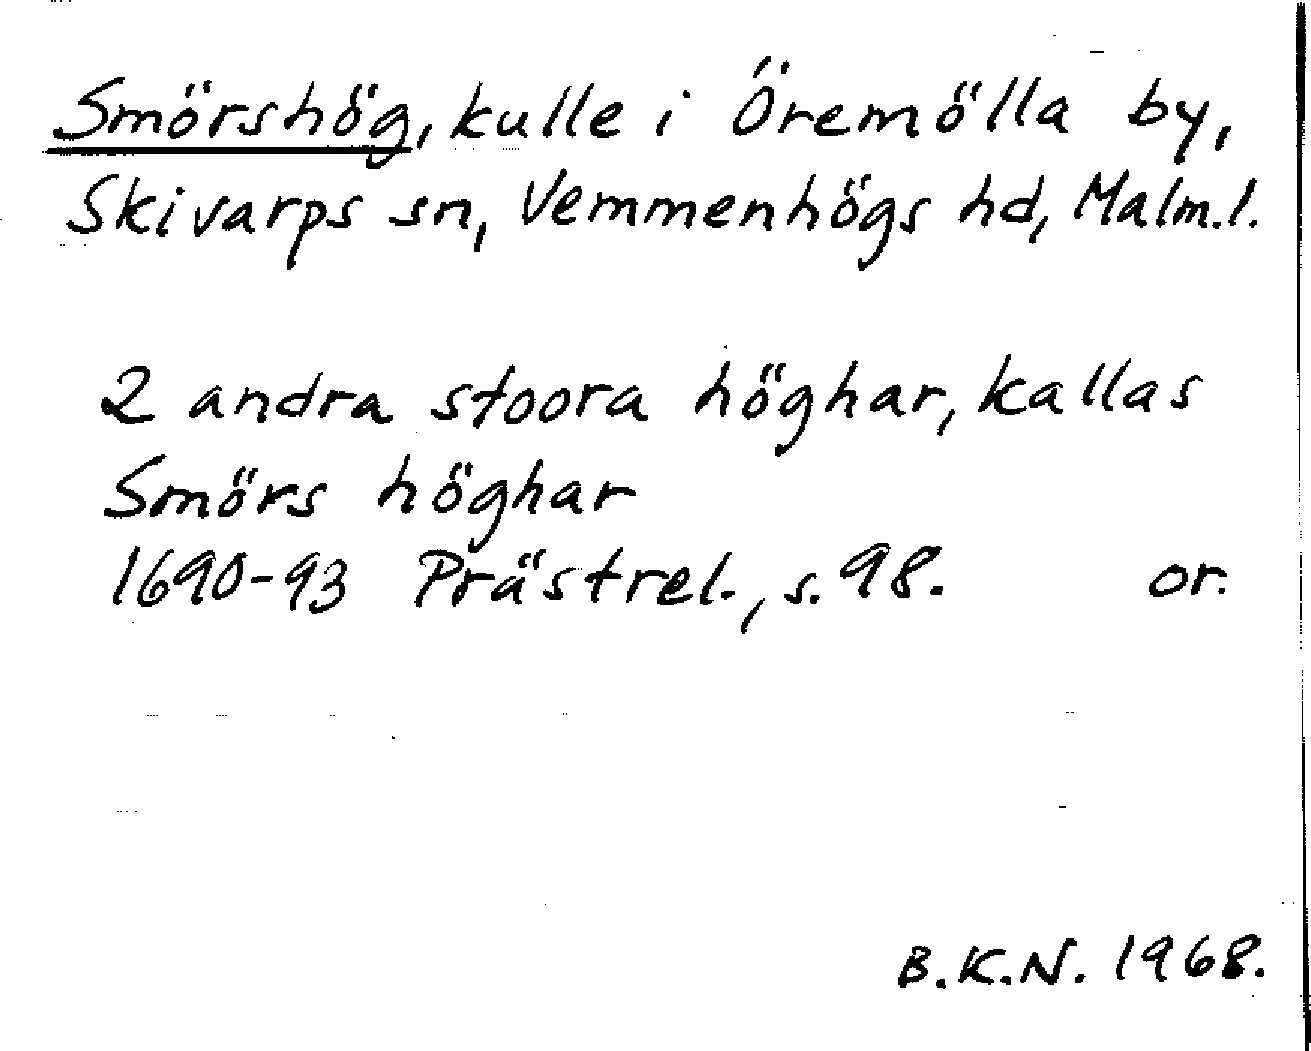 Smörshög, kulle i Öremölla by,
Skivarps sn, Vemmenhögs hd, Malm.l.
2 andra stoora höghar, kallas
Smörs höghar
1690-93 Prästrel., s. 98. or.
B.K.N. 1968.